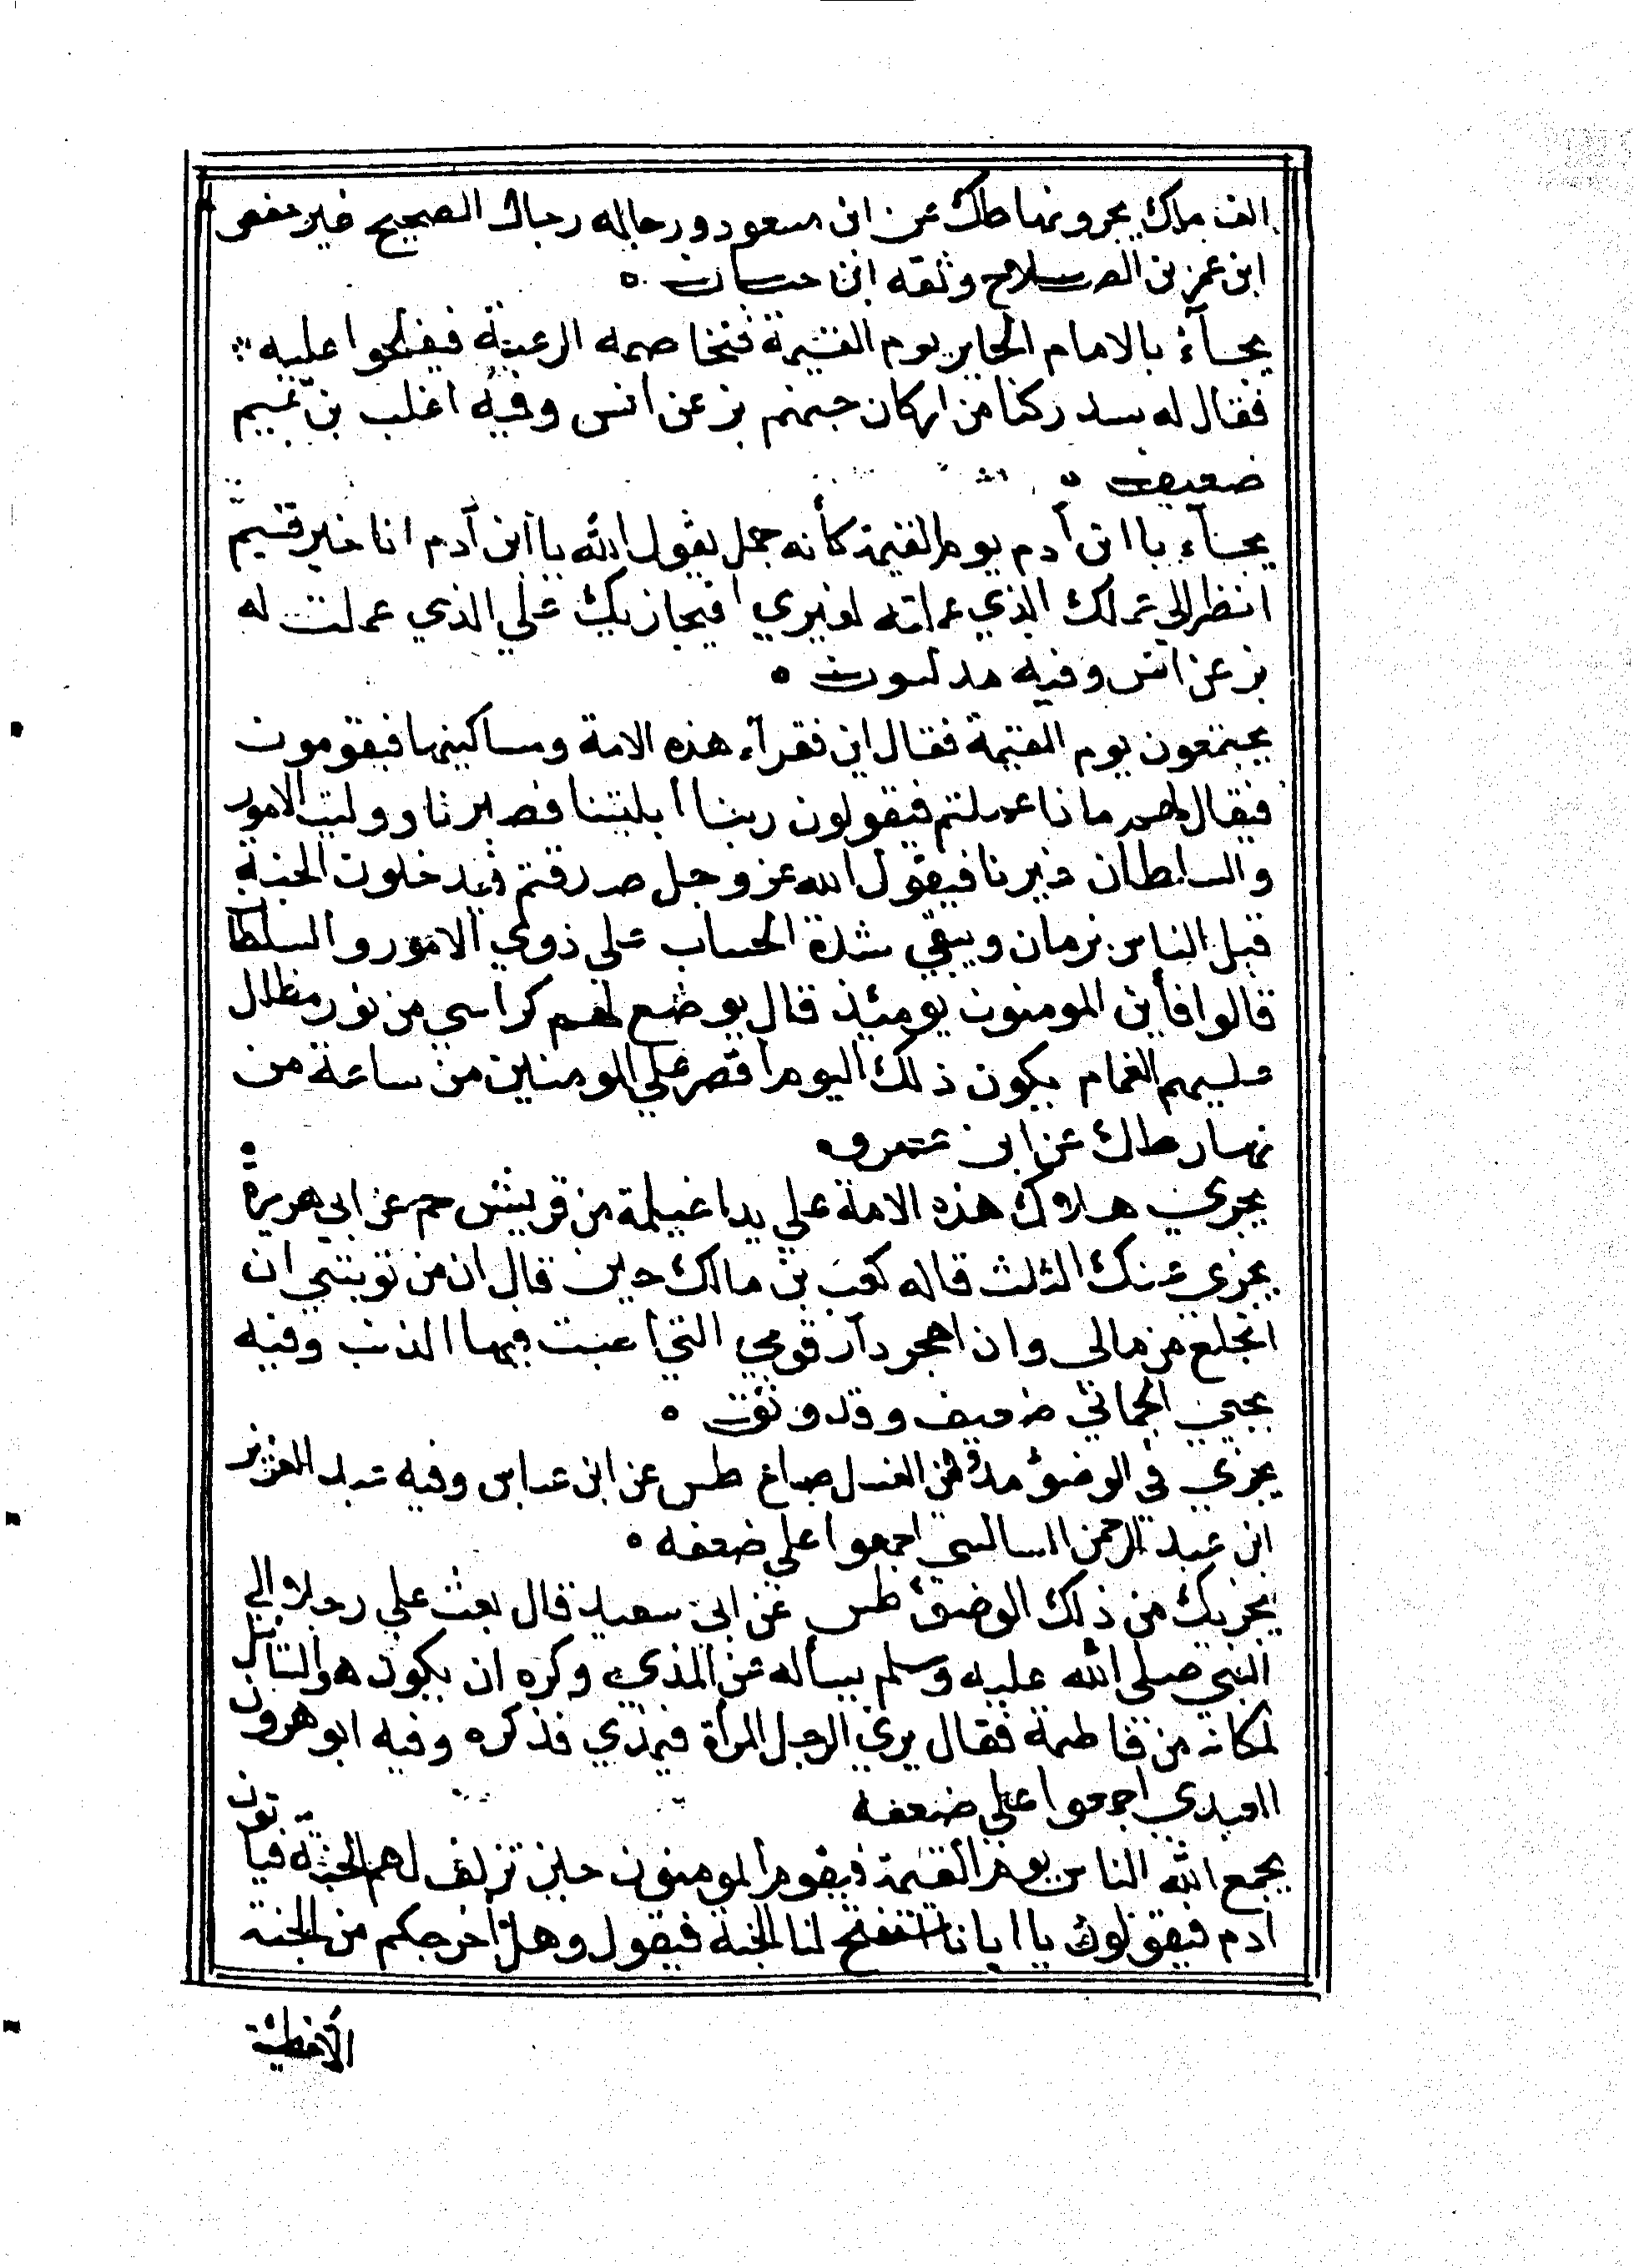 الف ملك يجرونها طك عن ابن مسعود ورجاله رجال الصحيح غير حفص
ابن عمر بن الصلاح وثقه ابن حبان ه
يجآء بالامام الجاير يوم القيمة فتخاصمه الرعية فيفلحوا عليه
فقال له سد ركنا من اركان جهنم بز عن انس وفيه اغلب بن تميم
ضعيف ه
يجآء باابن آدم يوم القيمة كأنه جمل يقول الله ياابن آدم انا خير قسيم
انظر الي عملك الذي عملته لغيري فيجازيك علي الذي عملت له
بز عن انس وفيه مدلسون ه
يجتمعون يوم القيمة فقال اين فقرآء هذه الامة ومساكينها فيقومون
فيقال لهم ماذا عملتم فيقولون ربنا ابليتنا فصبرنا ووليت الامور
والسلطان غيرنا فيقول الله عز وجل صدقتم فيدخلون الجنة
قبل الناس بزمان ويبقي شدة الحساب علي ذوي الامور والسلطا
قالوا فأين المومنون يومئذ قال يوضع لهم كراسي من نور مظلل
عليهم الغمام يكون ذلك اليوم اقصر علي المومنين من ساعة من
نهار طك عن ابن عمرو ه
يجري هلاك هذه الامة علي يد اغيلمة من قريش حم عن ابي هريرة
يجزي عنك الثلث قاله كعب بن مالك حين قال ان من توبتي ان
انخلع من مالي وان اهجر دار قومي التي اصبت فيها الذنب وفيه
يحيي الحماني ضعيف وقد وثق ه
يجزي في الوضوء مد وفي الغسل صاع طس عن ابن عباس وفيه عبد العزيز
ابن عبد الرحمن البالسي اجمعوا علي ضعفه ه
يجزيك من ذلك الوضوء طس عن ابي سعيد قال بعث علي رجلا الي
النبي صلي الله عليه وسلم يسأله عن المذي وكره ان يكون هو السائل
لمكانه من فاطمة فقال يري الرجل المرأة فيمذي فذكره وفيه ابو هرون
العبدي اجمعوا علي ضعفه
يجمع الله الناس يوم القيمة فيقوم المومنون حين تزلف لهم الجنة فياتون
ادم فيقولون ياابانا استفتح لنا الجنة فيقول وهل اخرجكم من الجنة
الاخطيئة